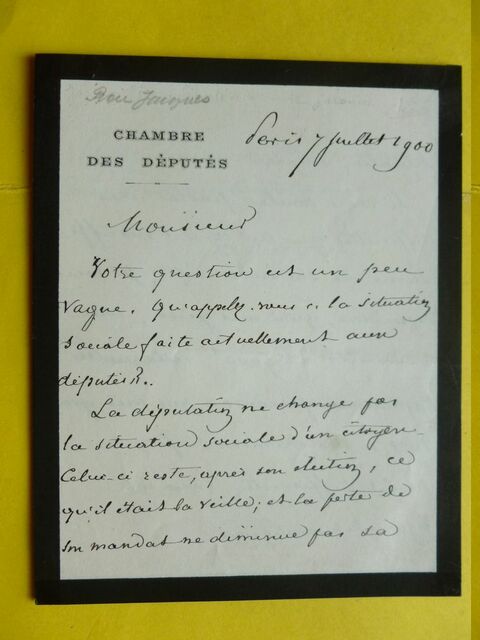 Roix Jacques
CHAMBRE
DES DÉPUTÉS
Paris 7 Juillet 1900
Monsieur
Votre question est un peu
vague. Qu'appelez-vous « la situation
sociale faite actuellement aux
députés »?..
La députation ne change pas
la situation sociale d'un citoyen.
Celui-ci reste, après son élection, ce
qu'il était la veille; et la perte de
son mandat ne diminue pas sa